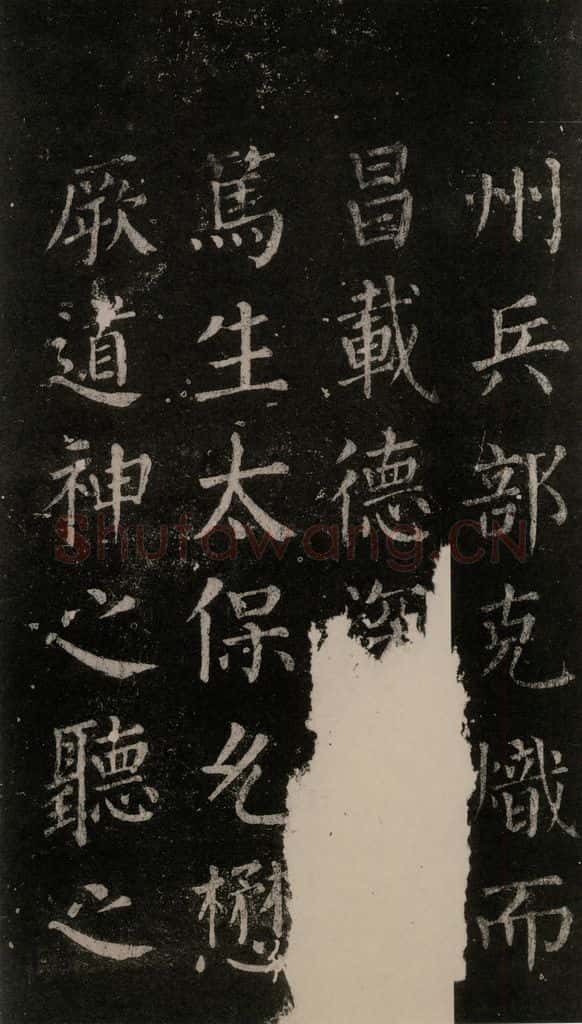 州兵部克熾而
昌載德深
篤生太保允懋
厥道神之聽之
Shufawang.CN